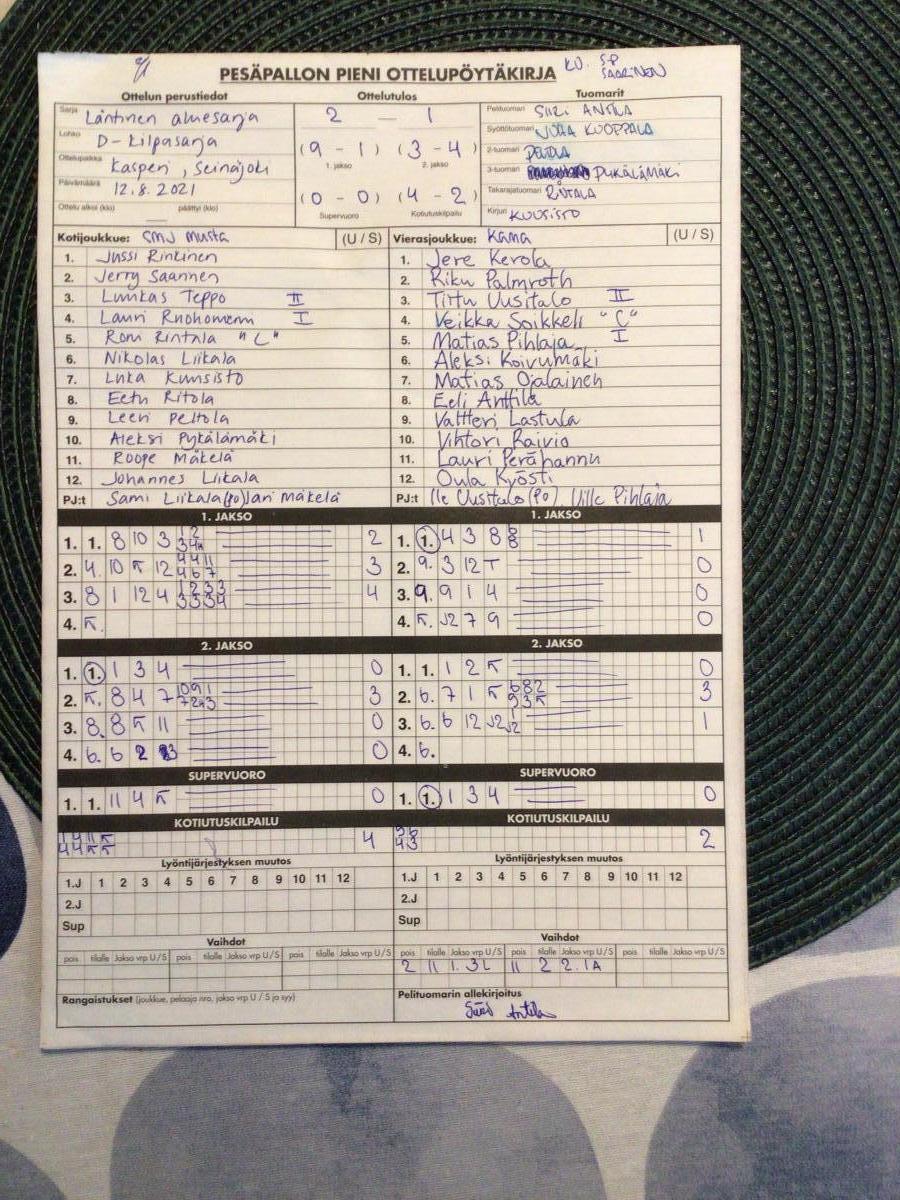 PESÄPALLON PIENI OTTELUPÖYTÄKIRJA
KU. S-P SAARINEN
Ottelun perustiedot
Sarja Läntinen aluesarja
Lohko D-kilpasarja
Ottelupaikka Kasperi, Seinäjoki
Päivämäärä 12.8.2021
Ottelu alkoi (klo) päättyi (klo)
Ottelutulos
2 — 1
(9 - 1) (3 - 4)
1. jakso 2. jakso
(0 - 0) (4 - 2)
Supervuoro Kotiutuskilpailu
Tuomarit
Pelituomari SIIRI ANTILA
Syöttötuomari JUHA KUOPPALA
2-tuomari PELTOLA
3-tuomari PYKÄLÄMÄKI
Takarajatuomari RITOLA
Kirjuri KUUSISTO
Kotijoukkue: SMJ Musta (U / S)
1. Jussi Rinkinen
2. Jerry Saarinen
3. Luukas Teppo II
4. Lauri Ruohomem I
5. Roni Rintala "C"
6. Nikolas Liikala
7. Luka Kuusisto
8. Eetu Ritola
9. Leevi Peltola
10. Aleksi Pykälämäki
11. Roope Mäkelä
12. Johannes Liikala
PJ:t Sami Liikala(po) Jari Mäkelä
Vierasjoukkue: Kama (U / S)
1. Jere Kerola
2. Riku Palmroth
3. Tirtu Uusitalo II
4. Veikka Soikkeli "C"
5. Matias Pihlaja I
6. Aleksi Koivumäki
7. Matias Ojalainen
8. Eeli Anttila
9. Valtteri Lastula
10. Vihtori Raivio
11. Lauri Perähannu
12. Oula Kyösti
PJ:t Ile Uusitalo (PO), Ville Pihlaja
1. JAKSO
1. 1. 8 10 3 2
2. 4. 10 5 12 3
3. 8 1 12 4 4
4. 5.
1. JAKSO
1. 1. 4 3 8 1
2. 9. 3 12 T 0
3. 9. 9 1 4 0
4. 5. J2 7 9 0
2. JAKSO
1. 1. 1 3 4 0
2. 5. 8 4 7 3
3. 8. 8 5 11 0
4. 6. 6 2 0
2. JAKSO
1. 1. 1 2 5 0
2. 6. 7 1 5 3
3. 6. 6 12 J2 1
4. 6.
SUPERVUORO
1. 1. 11 4 5 0
SUPERVUORO
1. 1. 1 3 4 0
KOTIUTUSKILPAILU
4
KOTIUTUSKILPAILU
2
Lyöntijärjestyksen muutos
1.J 1 2 3 4 5 6 7 8 9 10 11 12
2.J
Sup
Lyöntijärjestyksen muutos
1.J 1 2 3 4 5 6 7 8 9 10 11 12
2.J
Sup
Vaihdot
pois tilalle Jakso vrp U/S pois tilalle Jakso vrp U/S pois tilalle Jakso vrp U/S
Vaihdot
pois tilalle Jakso vrp U/S pois tilalle Jakso vrp U/S pois tilalle Jakso vrp U/S
2 11 1. 3L 11 2 2. 1A
Rangaistukset (joukkue, pelaaja nro, jakso vrp U / S ja syy)
Pelituomarin allekirjoitus
Siiri Antila